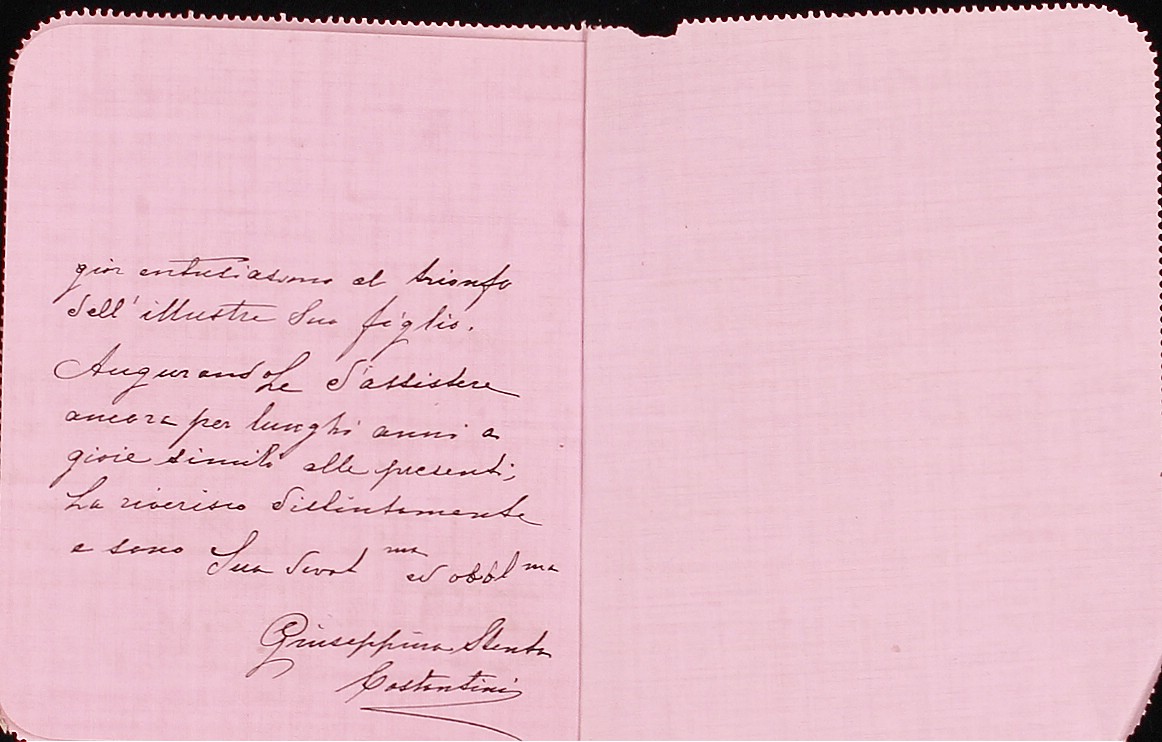 gior entusiasmo al trionfo
dell'illustre Suo figlio.
AugurandoLe d'assistere
ancora per lunghi anni a
gioie simili alle presenti;
La riverisco distintamente
e sono Sua devot ma ed obbl ma
Giuseppina Stenta
Costantini